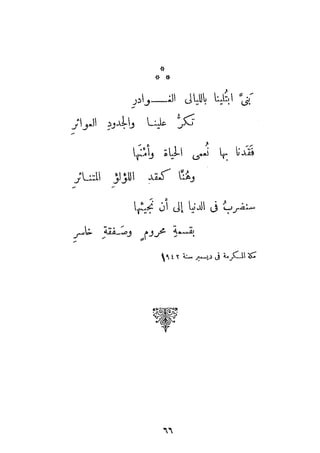 بَنِيَّ ابْتُلينا بالليالى الغــوادرِ
تكرُّ علينا والجدودِ العواثرِ
فَقَدنا بها نُعمى الحياة وأمْنَها
وهُنَّا كعقد اللؤلؤِ المتناثرِ
سنضربُ فى الدنيا إلى أن نَجيئها
بقسمةِ محرومٍ وصَفقةِ خاسرِ
مكة المكرمة فى ديسمبر سنة ١٩٤٢
٦٦